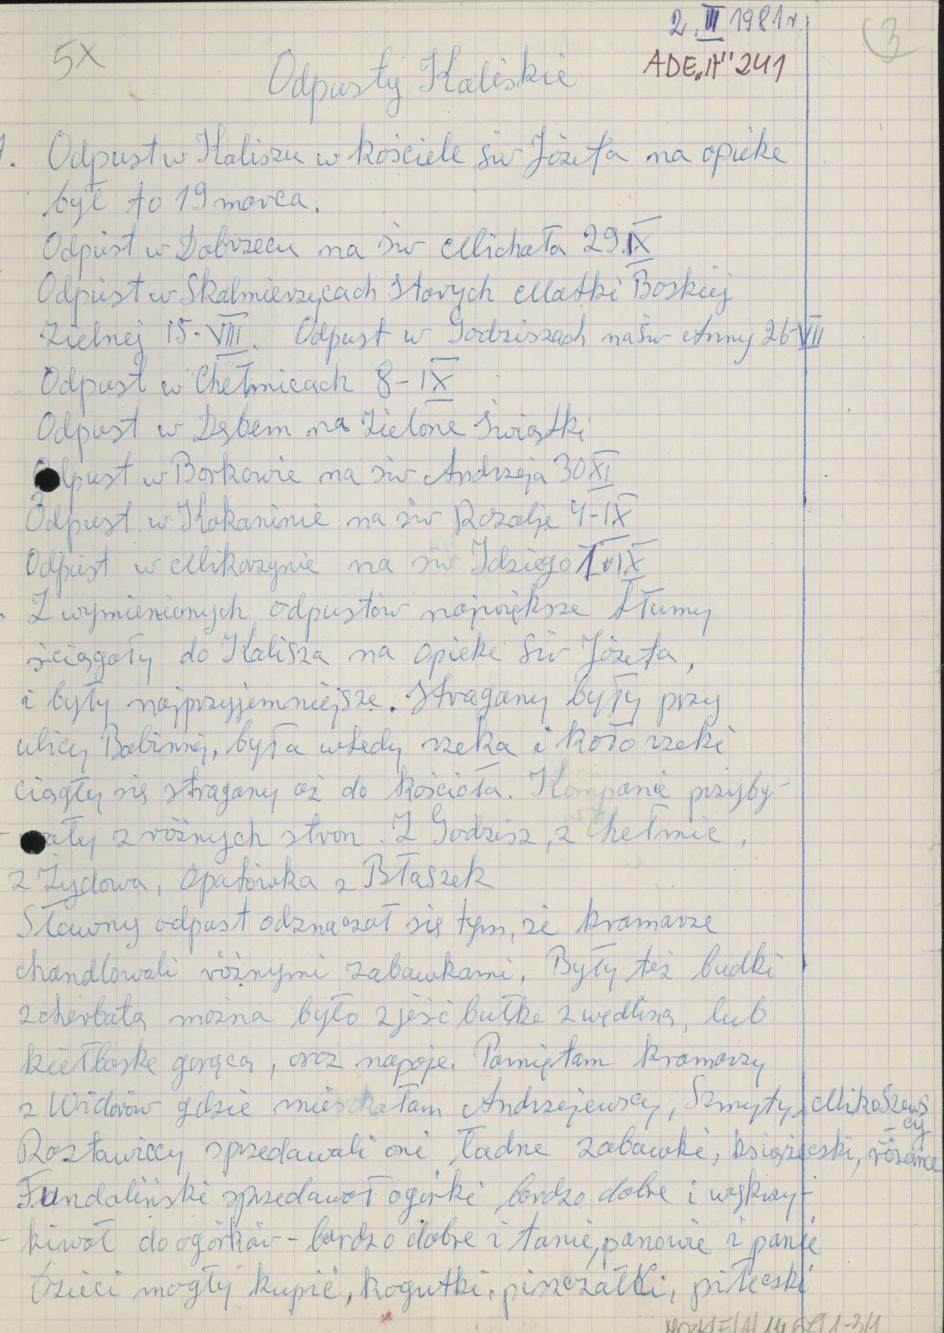 2. III 1981 r.
3
5X
ADE „H" 241
Odpusty Kaliskie
1. Odpust w Kaliszu w kościele św Józefa na opieke
był to 19 marca.
Odpust w Dobrzecu na św Michała 29.IX
Odpust w Skalmierzycach Starych Matki Boskiej
Zielnej 15-VIII. Odpust w Godziszach na św Anny 26-VII
Odpust w Chełmicach 8-IX
Odpust w Dębem na Zielone Świątki
Odpust w Borkowie na św Andrzeja 30 XI
Odpust w Kokaninie na św Rozalje 4-IX
Odpust w Mikorzynie na św Idziego 1-IX
Z wymienionych odpustów największe tłumy
ściągały do Kalisza na opieke św Józefa,
i były najprzyjemniejsze. Stragany były przy
ulicy Babinej, była wtedy rzeka i koło rzeki
ciągły się stragany aż do kościoła. Kompanie przyby-
wały z różnych stron. Z Godzisz, z Chełmic,
z Żydowa, Opatówka z Błaszek
Sławny odpust odznaczał się tym, że kramarze
chandlowali różnymi zabawkami. Były też budki
z cherbatą można było zjeść bułke z wędliną, lub
kiełbaske gorącą, oraz napoje. Pamiętam kramarzy
z Widorów gdzie mieszkałam Andrzejewscy, Szmyty, Mikoszews
cy
Rozławiccy sprzedawali oni ładne zabawki, książeczki, różańce
Fundaliński sprzedawał ogórki bardzo dobre i wykrzy-
kiwał do ogórków - bardzo dobre i tanie, panowie i panie
Dzieci mogły kupić, kogutki, piszczałki, piłeczki